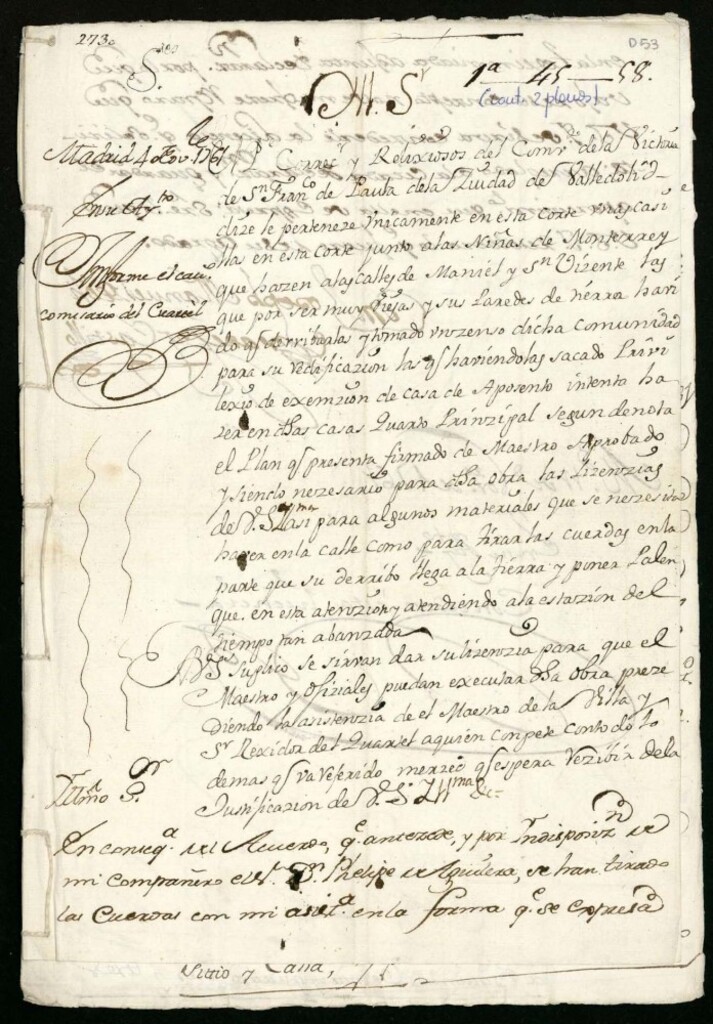 273.
D53
S.res
Ill. S.r
1ª 45 — 58.
(cont. 2 planos)
Madrid 4 de
En su Ay.to
Informe el cav.
comisario del Cuartel
El Correc.r y Relixiosos del Comv.to de la Victoria
de S.n Fran.co de Paula de la Ziudad de Valledolid
dize le perteneze vnicamente en esta Corte vnas casi
llas en esta Corte junto a las Niñas de Monterrey
que hazen a las calles de Maniel y S.n Vizente las
que por ser muy viejas y sus Paredes de tierra havi
do q.e derribarlas y tomado vn zenso dicha comunidad
para su redificazion las q.e haviendolas sacado Privi
lexio de exemzion de casa de Aposento intenta ha
zer en dhas casas Quarto Prinzipal segun denota
el Plan q.e presenta firmado de Maestro Aprobado
y siendo nezesario para dha obra las Lizenzias
de V.S. Ill.ma asi para algunos materiales que se nezesitan
hazer en la calle como para tirar las cuerdas en la
parte que su derribo llega a la tierra y poner Palen
que. en esta atenzion y atendiendo a la estazion del
tiempo tan abanzada
A V.S. Suplico se sirvan dar su lizenzia para que el
Maestro y ofiziales puedan executar dha obra preze
diendo la asistenzia de el Maestro de la Villa y
S.r Rexidor del Quartel a quien conpete con todo lo
demas q.e va referido merzed q.e espera rezivir de la
Justificazion de V.S. Ill.ma &c.
En conseq.a del Acuerdo, q.e antecede, y por Indisposiz.n de
mi compañero el S.r D.n Phelipe de Aguilera, se han tirado
las Cuerdas con mi asist.a en la forma q.e se expresa
Sittio y Cassa,